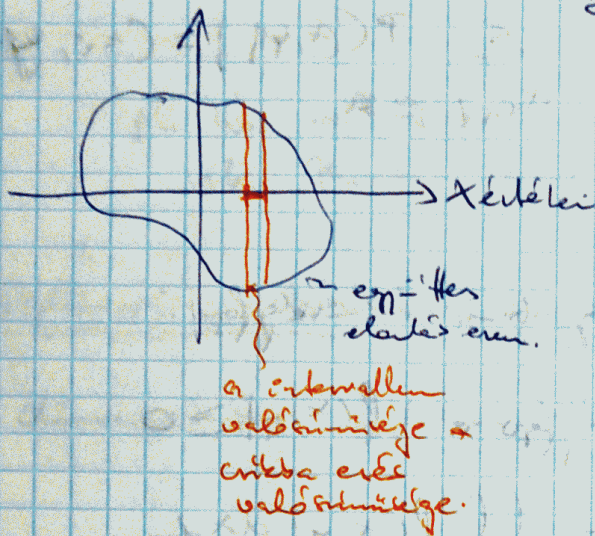 X értékei
együttes
eloszlás esem.
a intervallum
valószínűsége a
csíkba esés
valószínűsége.